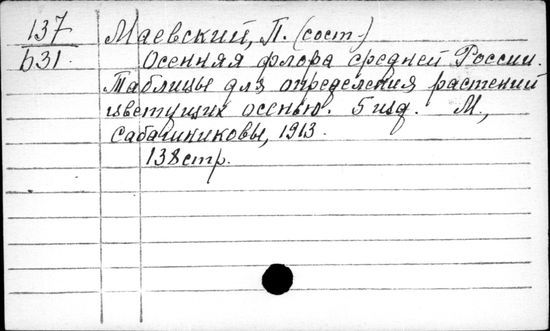 137 Маевский, П. (сост.)
b31. Осенняя флора средней России.
Таблицы для определения растений
цветущих осенью. 5 изд. М.,
Сабашниковы, 1913.
138 стр.